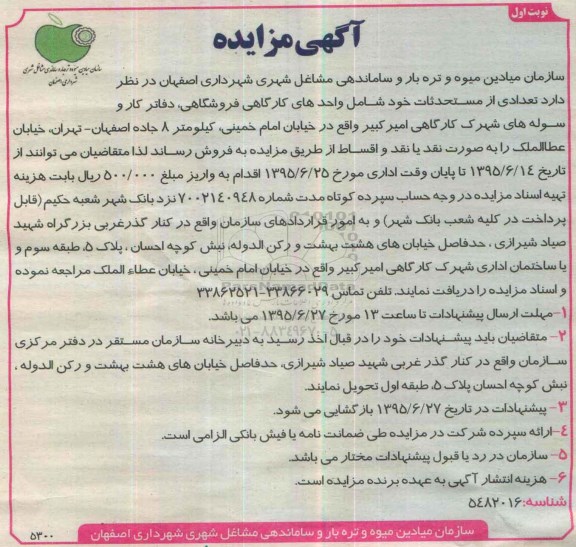 نوبت اول
آگهی مزایده
سازمان میادین میوه و تره بار و ساماندهی مشاغل شهری
شهرداری اصفهان
سازمان میادین میوه و تره بار و ساماندهی مشاغل شهری شهرداری اصفهان در نظر
دارد تعدادی از مستحدثات خود شامل واحد های کارگاهی فروشگاهی، دفاتر کار و
سوله های شهرک کارگاهی امیرکبیر واقع در خیابان امام خمینی، کیلومتر ۸ جاده اصفهان- تهران، خیابان
عطاالملک را به صورت نقد یا نقد و اقساط از طریق مزایده به فروش رساند لذا متقاضیان می توانند از
تاریخ ۱۳۹۵/۶/۱۴ تا پایان وقت اداری مورخ ۱۳۹۵/۶/۲۵ اقدام به واریز مبلغ ۵۰۰/۰۰۰ ریال بابت هزینه
تهیه اسناد مزایده در وجه حساب سپرده کوتاه مدت شماره ۷۰۰۲۱۴۰۹۴۸ نزد بانک شهر شعبه حکیم (قابل
پرداخت در کلیه شعب بانک شهر) و به امور قراردادهای سازمان واقع در کنار گذرغربی بزرگراه شهید
صیاد شیرازی ، حدفاصل خیابان های هشت بهشت و رکن الدوله، نبش کوچه احسان ، پلاک ۵، طبقه سوم و
یا ساختمان اداری شهرک کارگاهی امیرکبیر واقع در خیابان امام خمینی ، خیابان عطاء الملک مراجعه نموده
و اسناد مزایده را دریافت نمایند. تلفن تماس ۳۳۸۶۶۰۲۹-۳۳۸۶۲۵۲۱
۱-مهلت ارسال پیشنهادات تا ساعت ۱۳ مورخ ۱۳۹۵/۶/۲۷ می باشد.
۲- متقاضیان باید پیشنهادات خود را در قبال اخذ رسید به دبیرخانه سازمان مستقر در دفتر مرکزی
سازمان واقع در کنار گذر غربی شهید صیاد شیرازی، حدفاصل خیابان های هشت بهشت و رکن الدوله ،
نبش کوچه احسان پلاک ۵، طبقه اول تحویل نمایند.
۳- پیشنهادات در تاریخ ۱۳۹۵/۶/۲۷ بازگشایی می شود.
۴-ارائه سپرده شرکت در مزایده طی ضمانت نامه یا فیش بانکی الزامی است.
۵- سازمان در رد یا قبول پیشنهادات مختار می باشد.
۶- هزینه انتشار آگهی به عهده برنده مزایده است.
شناسه: ۵۴۸۲۰۱۶
سازمان میادین میوه و تره بار و ساماندهی مشاغل شهری شهرداری اصفهان
۵۳۰۰